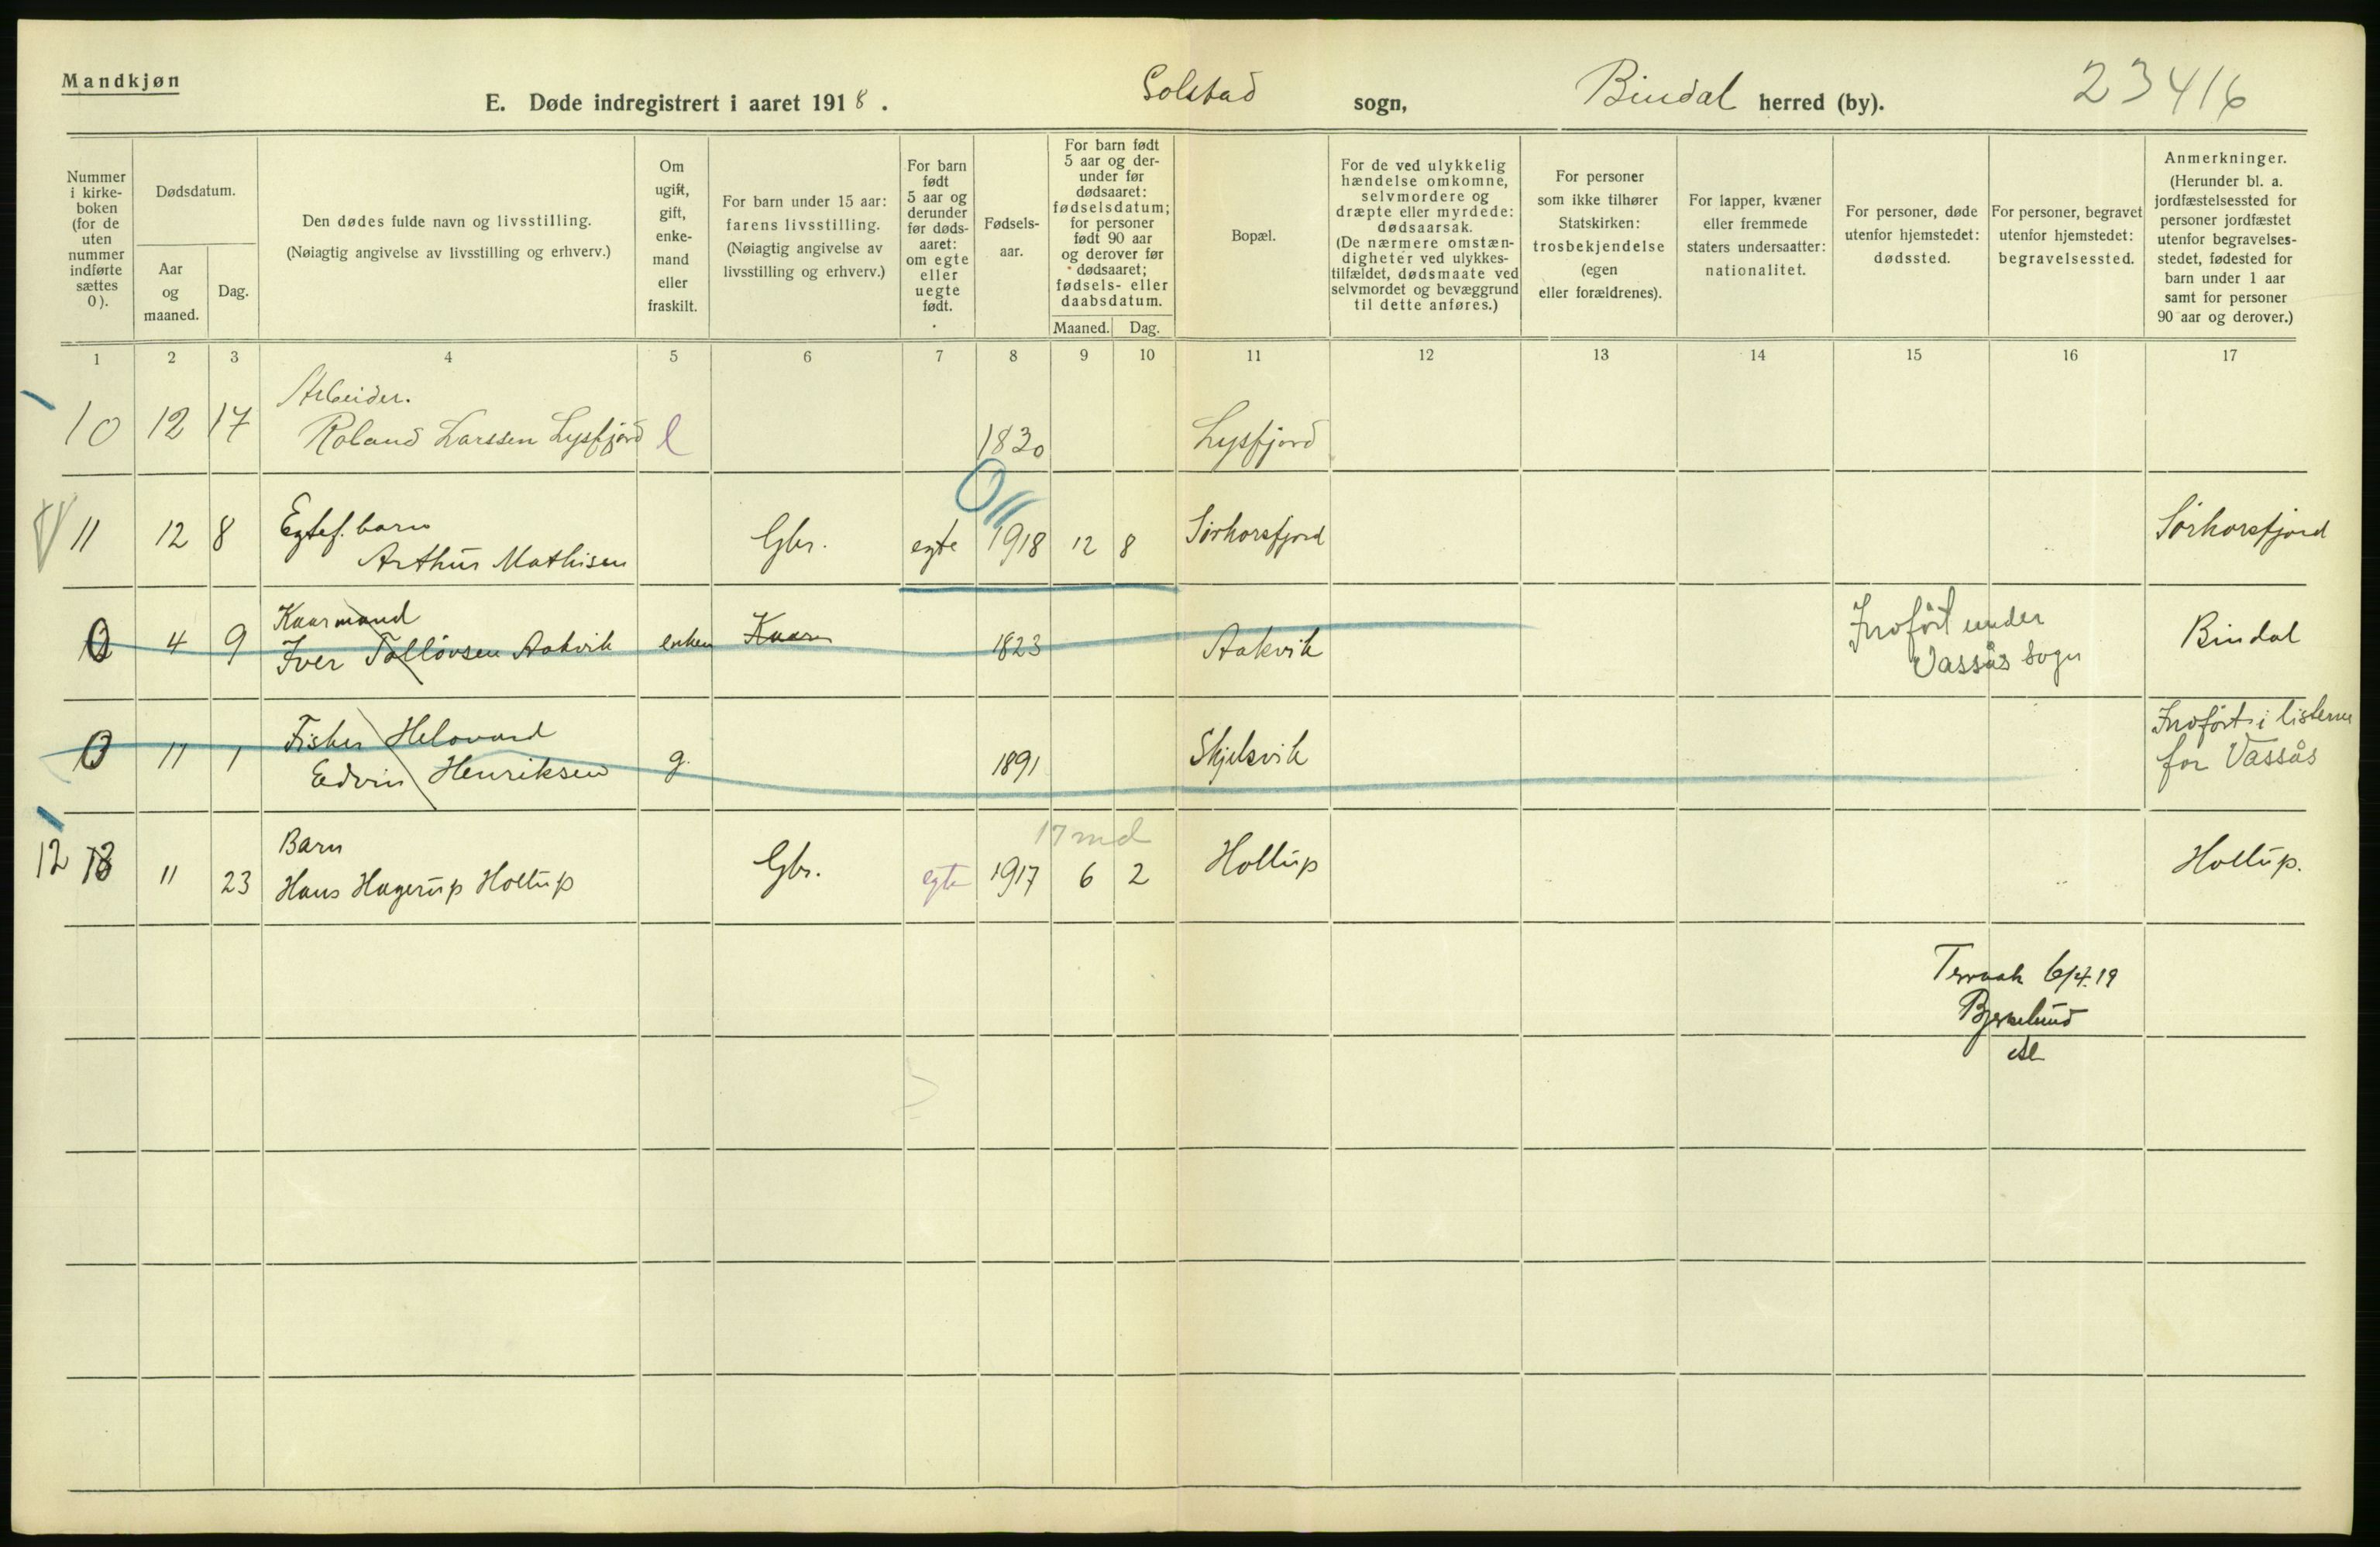 Mandkjøn
E. Døde indregistrert i aaret 1918. Solstad sogn, Bindal herred (by). 23416
Nummer i kirke- boken (for de uten nummer indførte sættes 0).
Dødsdatum.
Aar og maaned.
Dag.
Den dødes fulde navn og livsstilling.
(Nøiagtig angivelse av livsstilling og erhverv.)
Om ugift, gift, enke- mand eller fraskilt.
For barn under 15 aar: farens livsstilling.
(Nøiagtig angivelse av livsstilling og erhverv.)
For barn født 5 aar og derunder før døds- aaret: om egte eller uegte født.
Fødsels- aar.
For barn født 5 aar og der- under før dødsaaret: fødselsdatum; for personer født 90 aar og derover før dødsaaret; fødsels- eller daabsdatum.
Maaned. Dag.
Bopæl.
For de ved ulykkelig hændelse omkomne, selvmordere og dræpte eller myrdede: dødsaarsak.
(De nærmere omstæn- digheter ved ulykkes- tilfældet, dødsmaate ved selvmordet og bevæggrund til dette anføres.)
For personer som ikke tilhører Statskirken: trosbekjendelse (egen eller forældrenes).
For lapper, kvæner eller fremmede staters undersaatter: nationalitet.
For personer, døde utenfor hjemstedet: dødssted.
For personer, begravet utenfor hjemstedet: begravelsessted.
Anmerkninger.
(Herunder bl. a. jordfæstelsessted for personer jordfæstet utenfor begravelses- stedet, fødested for barn under 1 aar samt for personer 90 aar og derover.)
1 2 3 4 5 6 7 8 9 10 11 12 13 14 15 16 17
Arbeider.
10 12 17 Roland Larssen Lysfjord l 1830 Lysfjord
Egtef. barn
11 12 8 Arthur Mathisen Gbr. egte 1918 12 8 Sørhorsfjord Sørhorsfjord
Kaarmand
0 4 9 Iver Tolløvsen Aakvik enkem Kaarm 1823 Aakvik Bindal
Indført under
Vassås sogn
Fisker Helovard
0 11 1 Edvin Henriksen g. 1891 Skjelsvik
Indført i listerne
for Vassås
Barn 17 md
12 13 11 23 Hans Hagerup Holtup Gbr. egte 1917 6 2 Holtup Holtup.
Terraak 6/4.19
Bjerkelund